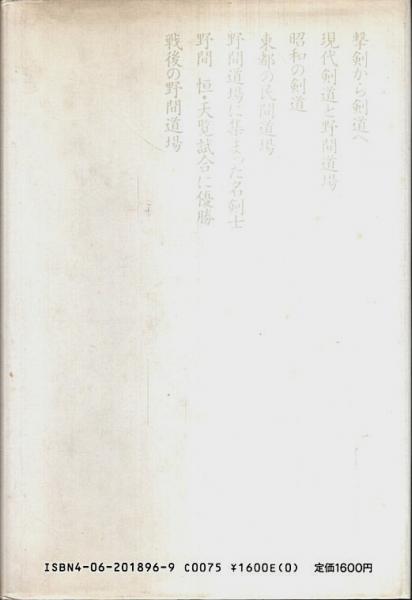 撃剣から剣道へ
現代剣道と野間道場
昭和の剣道
東都の民間道場
野間道場に集まった名剣士
野間 恒・天覧試合に優勝
戦後の野間道場
ISBN4-06-201896-9 C0075 ¥1600E(0) 定価1600円